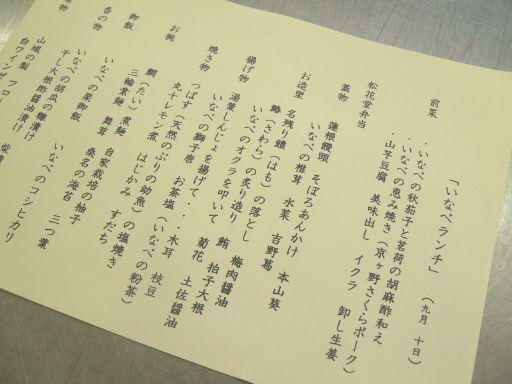 「いなべランチ」 (九月 十日)
前菜 ・いなべの秋茄子と茗荷の胡麻酢和え
・いなべの恵み焼き(京ヶ野さくらポーク)
・山芋豆腐 美味出し イクラ 卸し生姜
松花堂弁当
蓋物 蓮根饅頭 そぼろあんかけ
いなべの椎茸 水菜 吉野葛 本山葵
お造里 名残り鱧(はも)の落とし 梅肉醤油
鰆(さわら)の炙り造り 鮪 拍子大根
いなべのオクラを叩いて 菊花 土佐醤油
揚げ物 湯葉しんじょを揚げて・・・木耳 枝豆
いなべの獅子唐 お茶塩(いなべの粉茶)
焼き物 つばす(天然のぶりの幼魚)の塩焼き
丸十レモン煮 はじかみ すだち
お椀 鯛(たい)煮麺 自家栽培の柚子
三輪素麺 舞茸 桑名の海苔 三つ葉
御飯 いなべの栗御飯 いなべのコシヒカリ
香の物 いなべの胡瓜の糠漬け
干し大根酢醤油漬け 柴漬
山城の梨
白ワイン